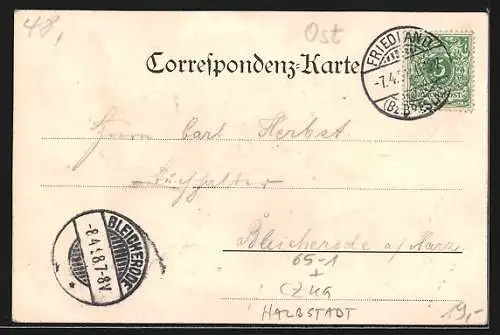 48,
Ost
Correspondenz-Karte
FRIEDLAND
-7.4.
5
Herrn Carl Herbst
Buchhalter
Bleicherode a/Harz
BLEICHERODE
-8.4. 8.7-8V.
* *
65-1
+
CZKG
HALBSTADT
19,-